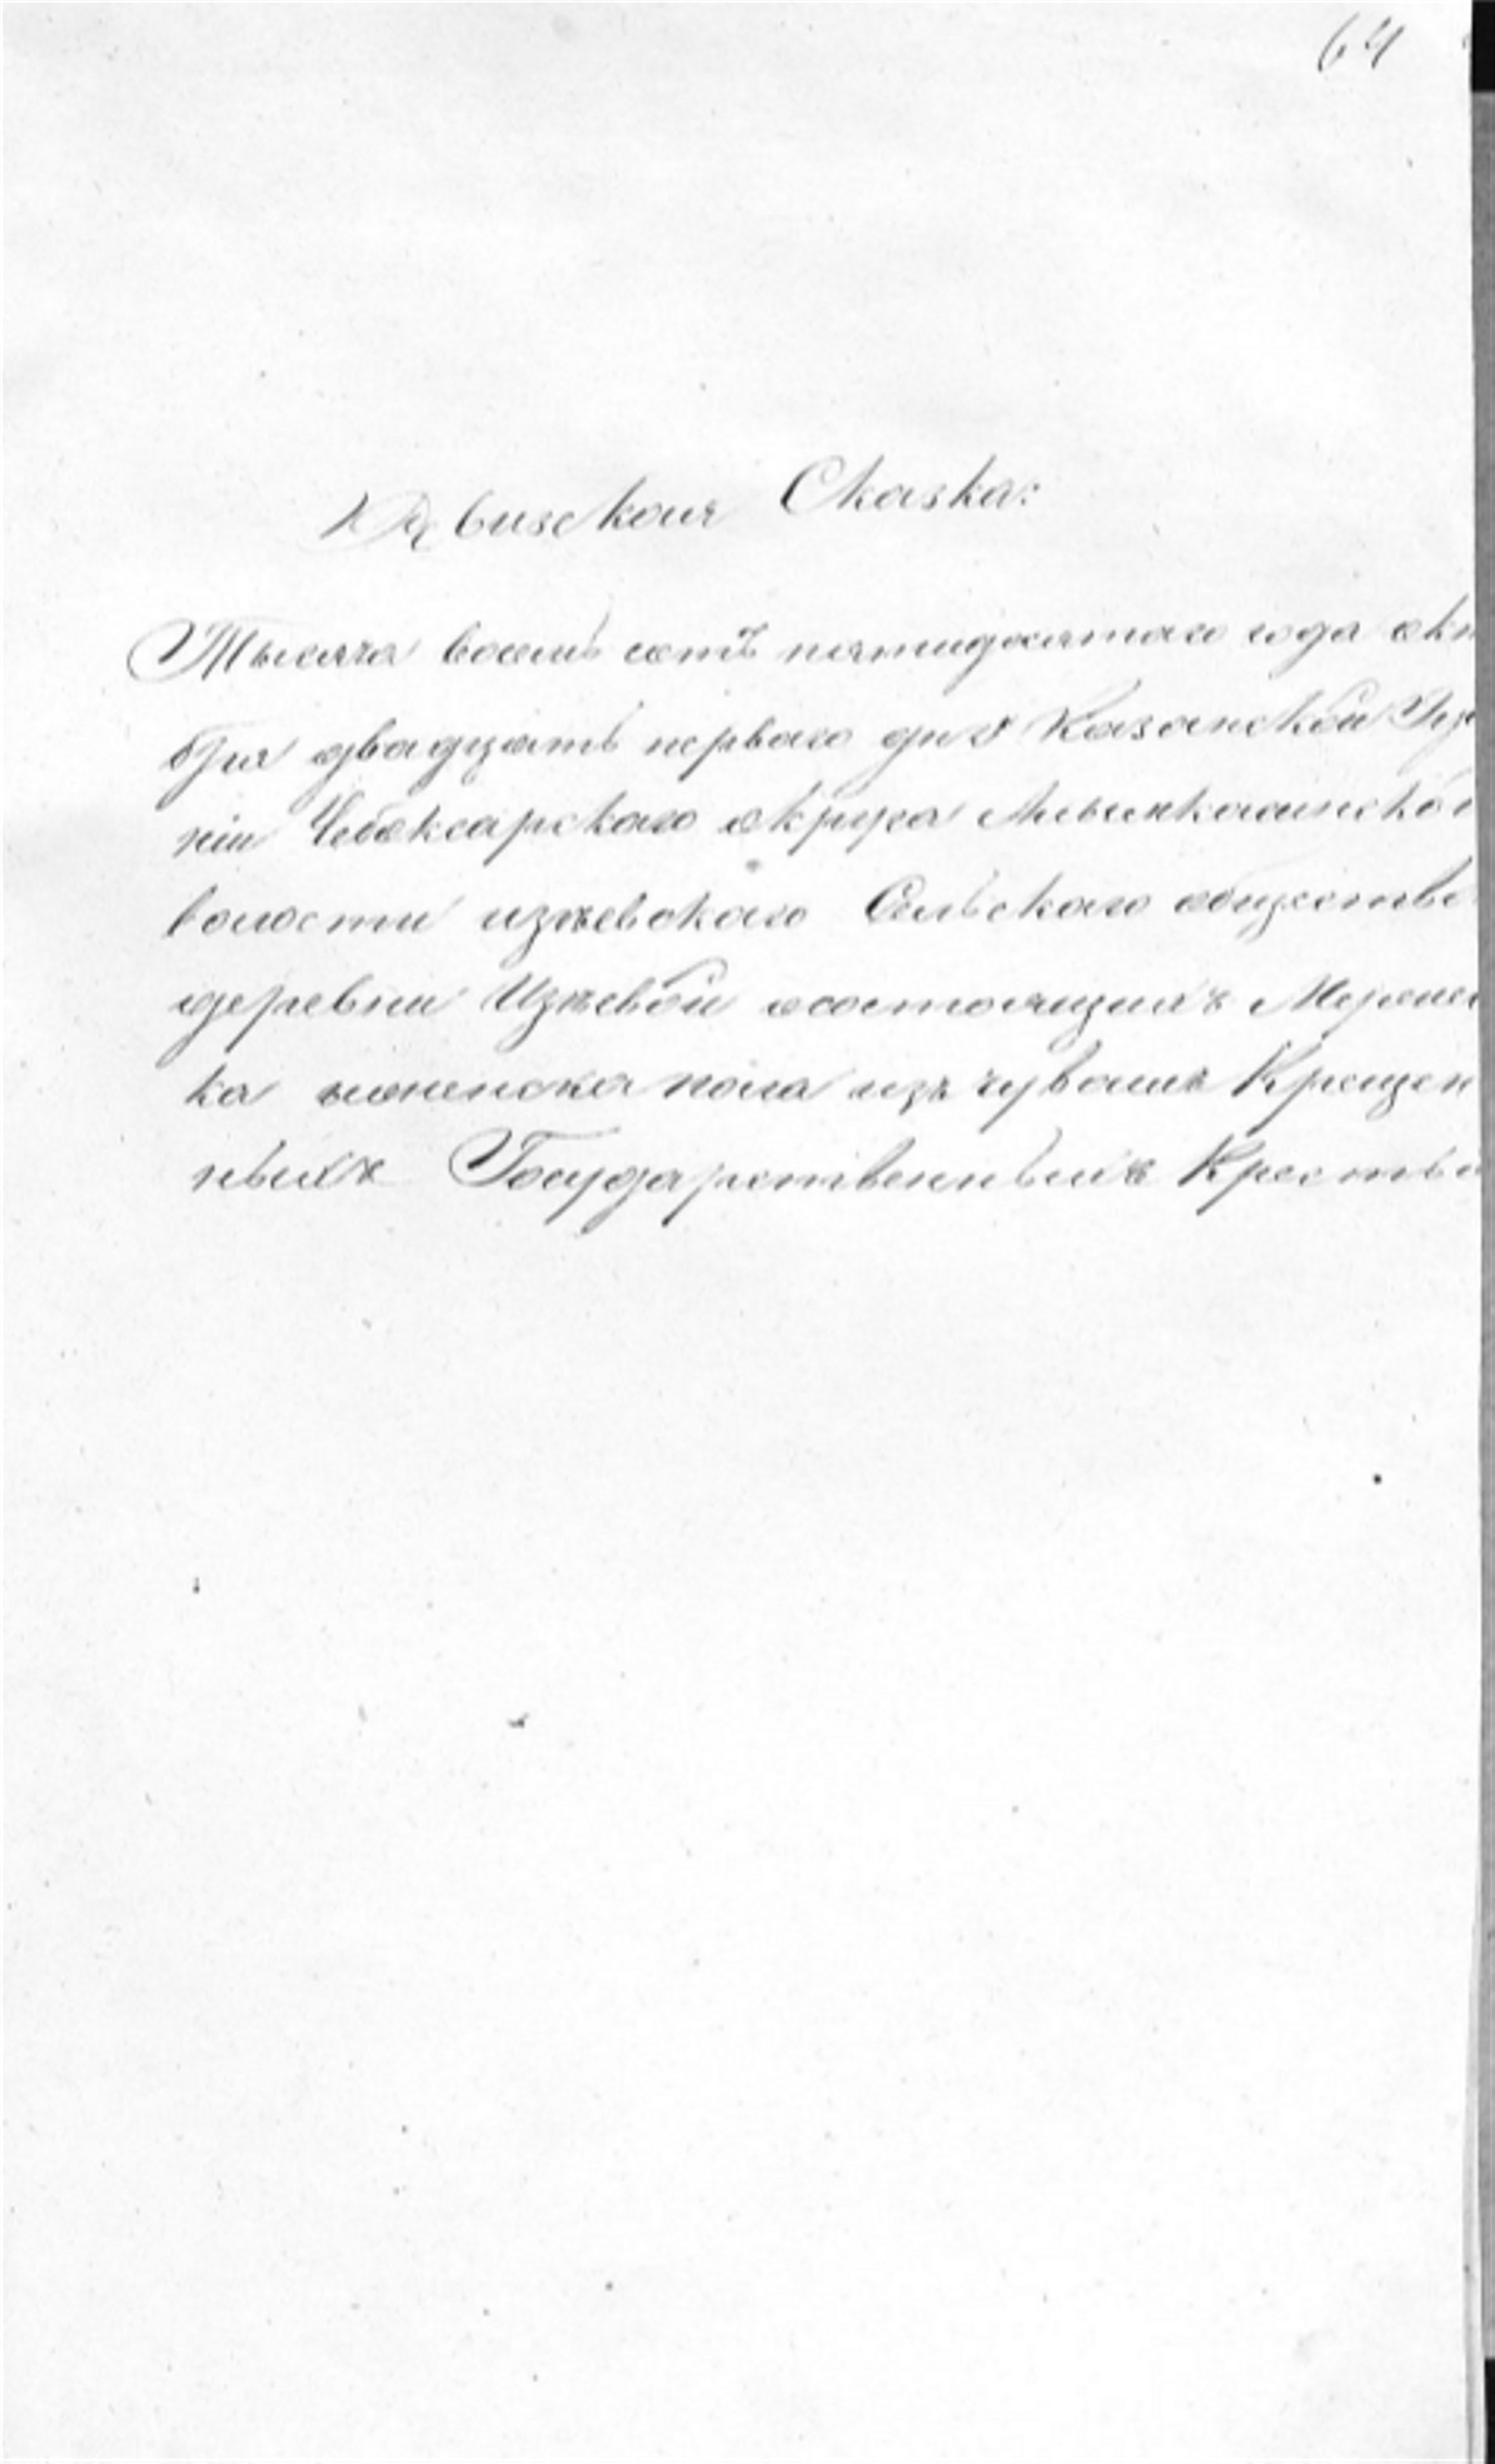 64
Ревизская Сказка:
Тысяча восемь сотъ пятидесятаго года окт
бря двадцать перваго дня Казанской Губ
ніи Чебоксарскаго округа
волости изѣевскаго Сельскаго обществ
деревни Изѣевой осостоящихъ Мужес
ка иженска пола изъ чувашъ Крещен
ныхъ Государственныхъ Крестья